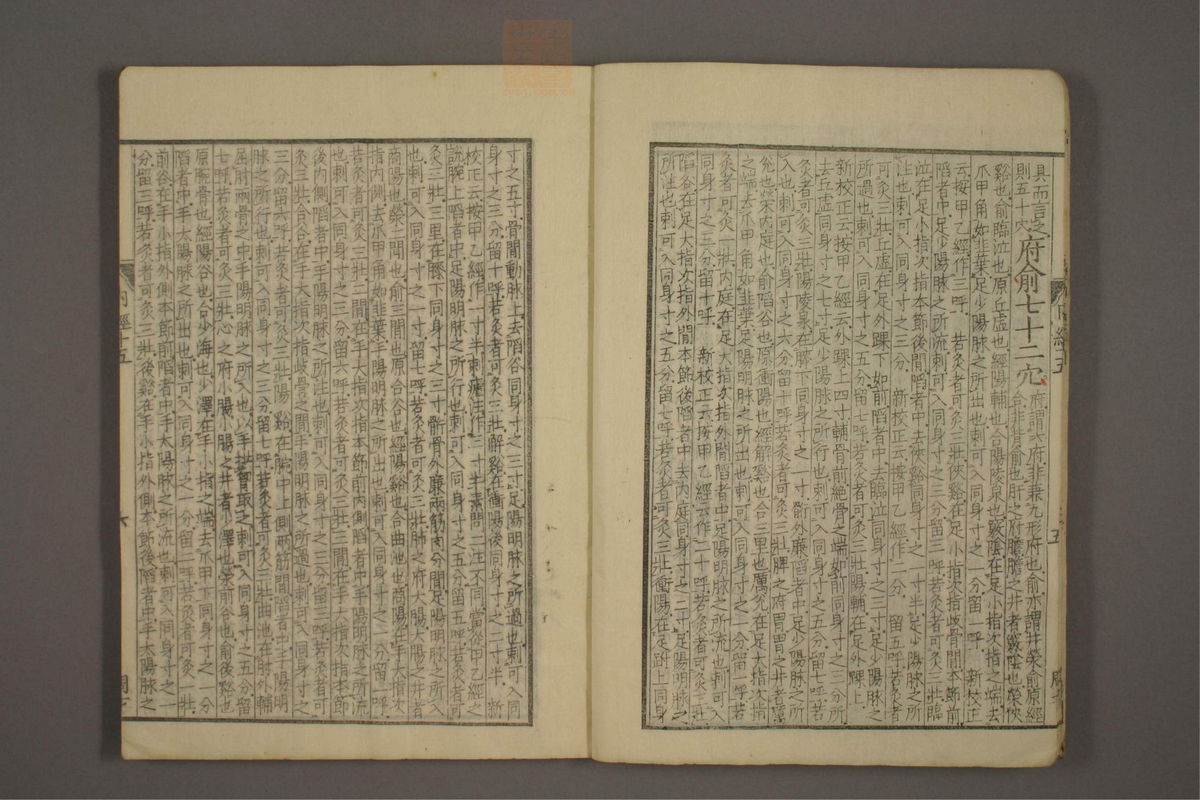 具而言之
則五十穴
府俞七十二穴
府謂六府非兼九形府也俞亦謂井滎俞原經
合非背俞也肝之府膽膽之井者竅陰也滎俠
谿也俞臨泣也原丘虛也經陽輔也合陽陵泉也竅陰在足小指次指之端去
爪甲角如韭葉足少陽脉之所出也刺可入同身寸之一分留一呼
新校正
云按甲乙經作三呼
若灸者可灸三壯俠谿在足小指次指歧骨間本節前
陷者中足少陽脉之所流刺可入同身寸之三分留三呼若灸者可灸三壯臨
泣在足小指次指本節後間陷者中去俠谿同身寸之一寸半足少陽脉之所
注也刺可入同身寸之三分
新校正云按甲乙經作二分
留五呼若灸者
可灸三壯丘虛在足外踝下如前陷者中去臨泣同身寸之三寸足少陽脉之
所過也刺可入同身寸之五分留七呼若灸者可灸三壯陽輔在足外踝上
新校正云按甲乙經云外踝上四寸
輔骨前絶骨之端如前同身寸之三分所
去丘虛同身寸之七寸足少陽脉之所行也刺可入同身寸之五分留七呼若
灸者可灸三壯陽陵泉在膝下同身寸之一寸䯒外廉陷者中足少陽脉之所
入也刺可入同身寸之六分留十呼若灸者可灸三壯脾之府胃胃之井者厲
兊也滎內庭也俞陷谷也原衝陽也經解谿也合三里也厲兊在足大指次指
之端去爪甲角如韭葉足陽明脉之所出也刺可入同身寸之一分留一呼若
灸者可灸一壯內庭在足大指次指外間陷者中足陽明脉之所流也刺可入
同身寸之三分留十呼
新校正云按甲乙經云作二十呼
若灸者可灸三壯
陷谷在足大指次指外間本節後陷者中去內庭同身寸之二寸足陽明脉之
所注也刺可入同身寸之五分留七呼若灸者可灸三壯衝陽在足跗上同身
寸之五寸骨間動脉上去陷谷同身寸之三寸足陽明脉之所過也刺可入同
身寸之三分留十呼若灸者可灸三壯解谿在衝陽後同身寸之二寸半
新
校正云按甲乙經作一寸半刺瘧注作三寸半素問二注不同當從甲乙經之
說
腕上陷者中足陽明脉之所行也刺可入同身寸之五分留五呼若灸者可
灸三壯三里在膝下同身寸之三寸䯒骨外廉兩筋肉分間足陽明脉之所入
也刺可入同身寸之一寸留七呼若灸者可灸三壯肺之府大腸大腸之井者
商陽也滎二間也俞三間也原合谷也經陽谿也合曲池也商陽在手大指次
指內側去爪甲角如韭葉手陽明脉之所出也刺可入同身寸之一分留一呼
若灸者可灸三壯二間在手大指次指本節前內側陷者中手陽明脉之所流
也刺可入同身寸之三分留六呼若灸者可灸三壯三間在手大指次指本節
後內側陷者中手陽明脉之所注也刺可入同身寸之三分留三呼若灸者可
灸三壯合谷在手大指次指歧骨之間手陽明脉之所過也刺可入同身寸之
三分留六呼若灸者可灸三壯陽谿在腕中上側兩筋間陷者中手陽明
脉之所行也刺可入同身寸之三分留七呼若灸者可灸三壯曲池在肘外輔
屈肘兩骨之中手陽明脉之所入也以手拱胷取之刺可入同身寸之五分留
七呼若灸者可灸三壯心之府小腸小腸之井者少澤也滎前谷也俞後谿也
原腕骨也經陽谷也合少海也少澤在手小指之端去爪甲下同身寸之一分
陷者中手太陽脉之所出也刺可入同身寸之一分留二呼若灸者可灸一壯
前谷在手小指外側本節前陷者中手太陽脉之所流也刺可入同身寸之一
分留三呼若灸者可灸三壯後谿在手小指外側本節後陷者中手太陽脉之
內經十五
六
五